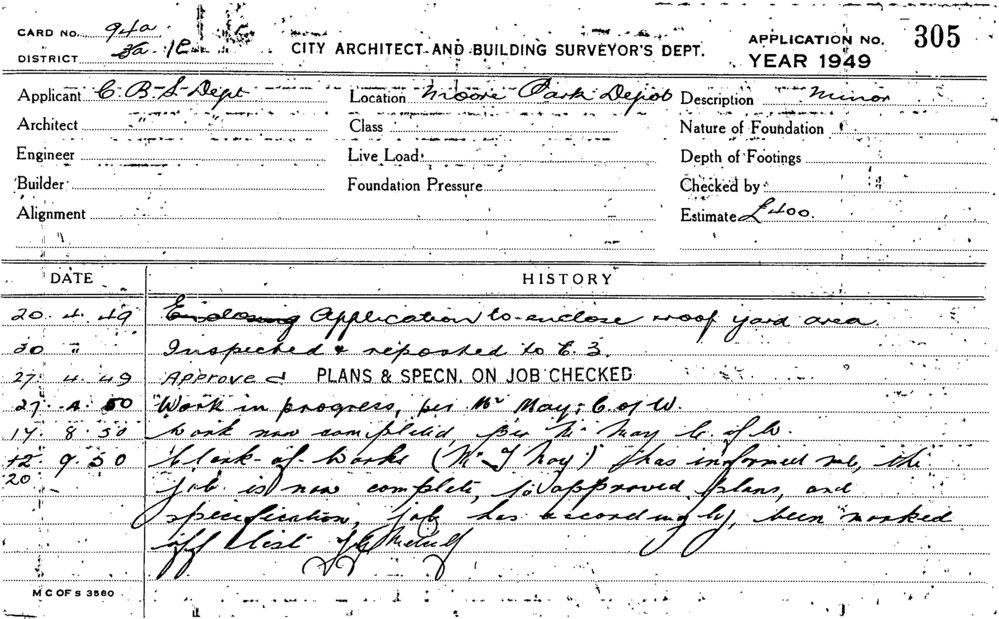 CARD NO. 94a
DISTRICT 3a 1E
CITY ARCHITECT AND BUILDING SURVEYOR'S DEPT.
APPLICATION NO. 305
YEAR 1949
Applicant C. B. S. Dept Location Moore Park Depot Description Minor
Architect Class Nature of Foundation
Engineer Live Load Depth of Footings
Builder Foundation Pressure Checked by
Alignment Estimate £400.
DATE HISTORY
20. 4. 49 Enclosing Application to enclose & roof yard area.
20 " Inspected & reported to C. S.
27. 4. 49 Approved PLANS & SPECN. ON JOB CHECKED
27. 4. 50 Work in progress, per Mr May, C. of W.
17. 8. 50 Work now completed, per Mr May C. of W.
12 9. 50 Clerk-of-Works (Mr J May) has informed me, the
20 job is now complete, to approved plans, and
specification, job has accordingly, been marked
off list
M C OF S 3580